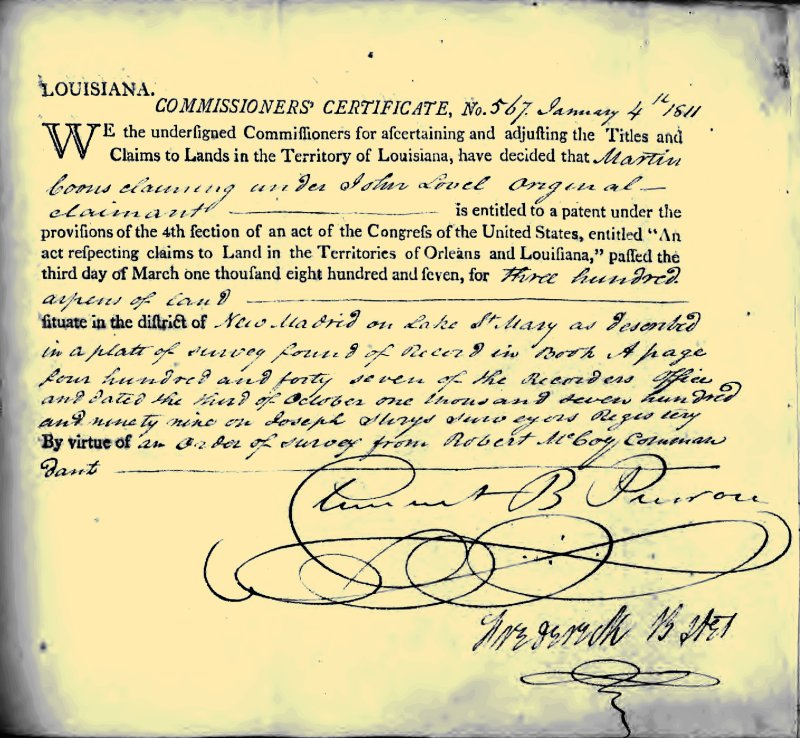 LOUISIANA.
COMMISSIONERS' CERTIFICATE, No. 567. January 4th 1811
WE the underſigned Commiſſioners for aſcertaining and adjuſting the Titles and
Claims to Lands in the Territory of Louiſiana, have decided that Martin
coons claiming under John Lovel original
claimant is entitled to a patent under the
proviſions of the 4th ſection of an act of the Congreſs of the United States, entitled "An
act reſpecting claims to Land in the Territories of Orleans and Louiſiana," paſſed the
third day of March one thouſand eight hundred and ſeven, for three hundred
arpens of land
ſituate in the diſtrict of New Madrid on Lake St Mary as described
in a platt of survey found of Record in Book A page
four hundred and forty seven of the Recorders office
and dated the third of October one thousand seven hundred
and ninety nine on Joseph Storys surveyors Registery
By virtue of an Order of survey from Robert McCoy Comman
dant
Clement B Penrose
Frederick Bates